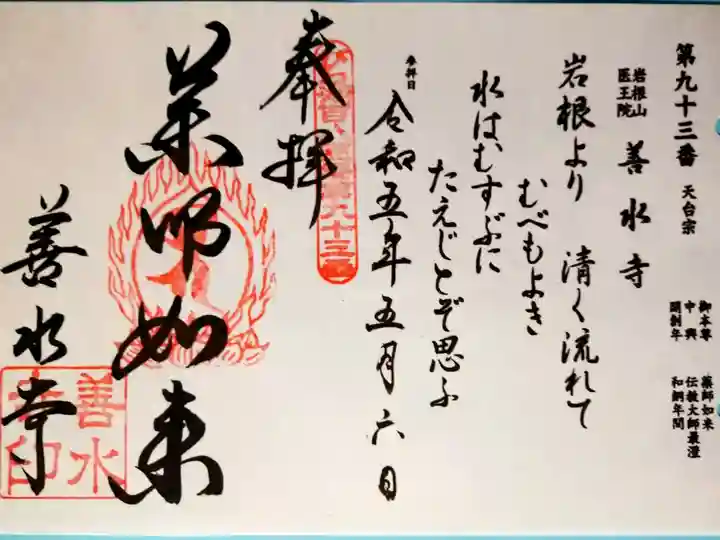 第九十三番 天台宗
岩根山
医王院
善水寺
御本尊 薬師如来
中興 伝教大師最澄
開創年 和銅年間
岩根より 清く流れて
むべもよき
水は、むすぶに
たえじとぞ思ふ
参拝日
令和五年五月六日
奉拝
九十三番
薬師如来
善水寺
善水
寺印